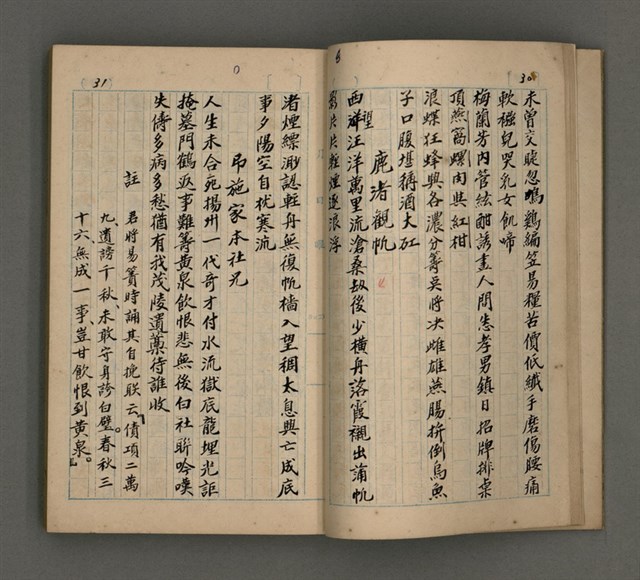 30
未曾交睫忽鳴鷄編笠易糧苦價低纖手磨傷腰痛
軟襁兒哭乳女飢啼
梅蘭芳內管絃酣誘盡人間悉孝男鎮日招牌排桌
頂燕窩螺肉與紅柑
浪蝶狂蜂興各濃分籌吳將决雌雄燕腸拚倒烏魚
子口腹堪稱酒大缸
鹿渚觀帆
西望汪洋萬里流滄桑劫後少橫舟落霞襯出蒲帆
影片片粧煙逐浪浮
31
渚煙縹渺認輕舟無復帆檣入望稠太息興亡成底
事夕陽空自枕寒流
吊施家本社兄
人生未合死揚州一代奇才付水流獄底龍埋光詎
掩墓門鶴返事難籌黃泉飲恨悲無後白社聯吟嘆
失儔多病多愁猶有我茂陵遺藁待誰收
註 君將易簀時誦其自挽联云「債項二萬
九、遺謗千秋、未敢守身誇白璧。春秋三
十六、無成一事、豈甘飲恨到黃泉。」